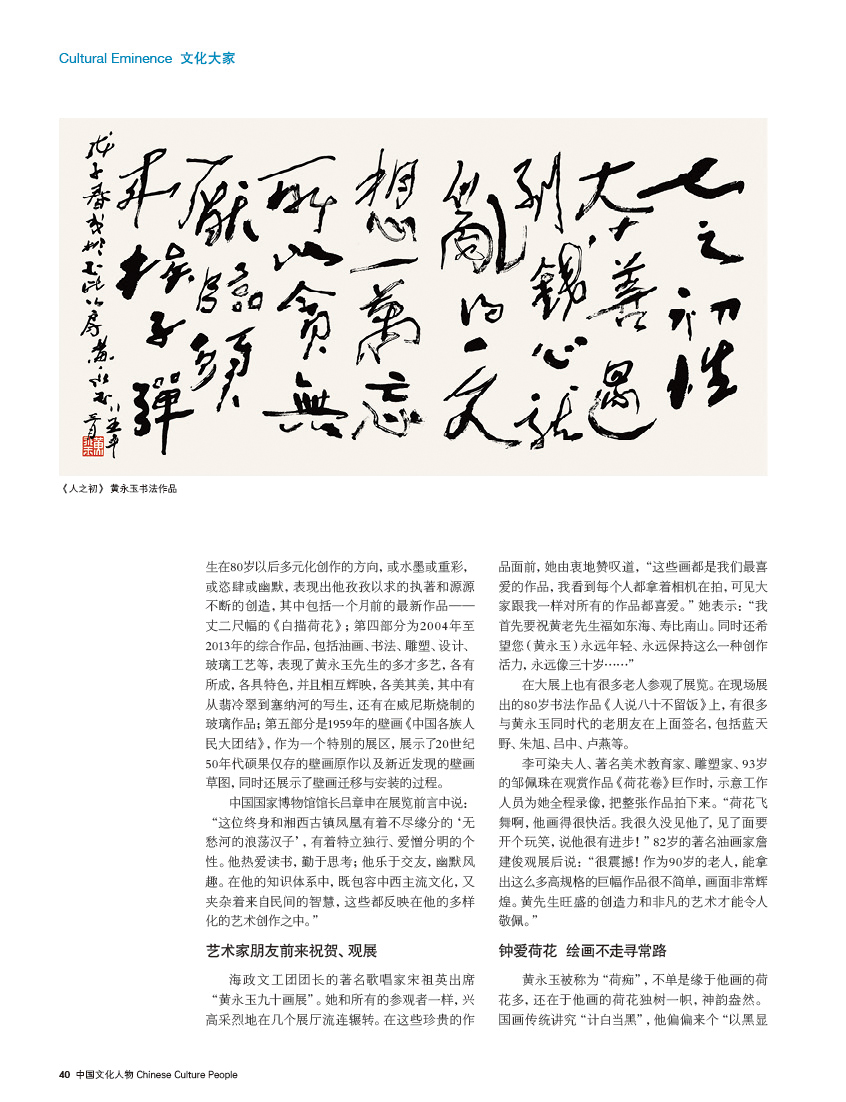 Cultural Eminence 文化大家
人之初性
本善遇
到錢心就
亂得一文
想一萬忘
所以貪無
厭臨頭
來挨子彈
戊子春
黄永玉
《人之初》 黄永玉书法作品
生在80岁以后多元化创作的方向，或水墨或重彩，
或恣肆或幽默，表现出他孜孜以求的执著和源源
不断的创造，其中包括一个月前的最新作品——
丈二尺幅的《白描荷花》；第四部分为2004年至
2013年的综合作品，包括油画、书法、雕塑、设计、
玻璃工艺等，表现了黄永玉先生的多才多艺，各有
所成，各具特色，并且相互辉映，各美其美，其中有
从翡冷翠到塞纳河的写生，还有在威尼斯烧制的
玻璃作品；第五部分是1959年的壁画《中国各族人
民大团结》，作为一个特别的展区，展示了20世纪
50年代硕果仅存的壁画原作以及新近发现的壁画
草图，同时还展示了壁画迁移与安装的过程。
中国国家博物馆馆长吕章申在展览前言中说：
“这位终身和湘西古镇凤凰有着不尽缘分的‘无
愁河的浪荡汉子’，有着特立独行、爱憎分明的个
性。他热爱读书，勤于思考；他乐于交友，幽默风
趣。在他的知识体系中，既包容中西主流文化，又
夹杂着来自民间的智慧，这些都反映在他的多样
化的艺术创作之中。”
艺术家朋友前来祝贺、观展
海政文工团团长的著名歌唱家宋祖英出席
“黄永玉九十画展”。她和所有的参观者一样，兴
高采烈地在几个展厅流连辗转。在这些珍贵的作
品面前，她由衷地赞叹道，“这些画都是我们最喜
爱的作品，我看到每个人都拿着相机在拍，可见大
家跟我一样对所有的作品都喜爱。”她表示：“我
首先要祝黄老先生福如东海、寿比南山。同时还希
望您（黄永玉）永远年轻、永远保持这么一种创作
活力，永远像三十岁……”
在大展上也有很多老人参观了展览。在现场展
出的80岁书法作品《人说八十不留饭》上，有很多
与黄永玉同时代的老朋友在上面签名，包括蓝天
野、朱旭、吕中、卢燕等。
李可染夫人、著名美术教育家、雕塑家、93岁
的邹佩珠在观赏作品《荷花卷》巨作时，示意工作
人员为她全程录像，把整张作品拍下来。“荷花飞
舞啊，他画得很快活。我很久没见他了，见了面要
开个玩笑，说他很有进步！”82岁的著名油画家詹
建俊观展后说：“很震撼！作为90岁的老人，能拿
出这么多高规格的巨幅作品很不简单，画面非常辉
煌。黄先生旺盛的创造力和非凡的艺术才能令人
敬佩。”
钟爱荷花 绘画不走寻常路
黄永玉被称为“荷痴”，不单是缘于他画的荷
花多，还在于他画的荷花独树一帜，神韵盎然。
国画传统讲究“计白当黑”，他偏偏来个“以黑显
40 中国文化人物 Chinese Culture People